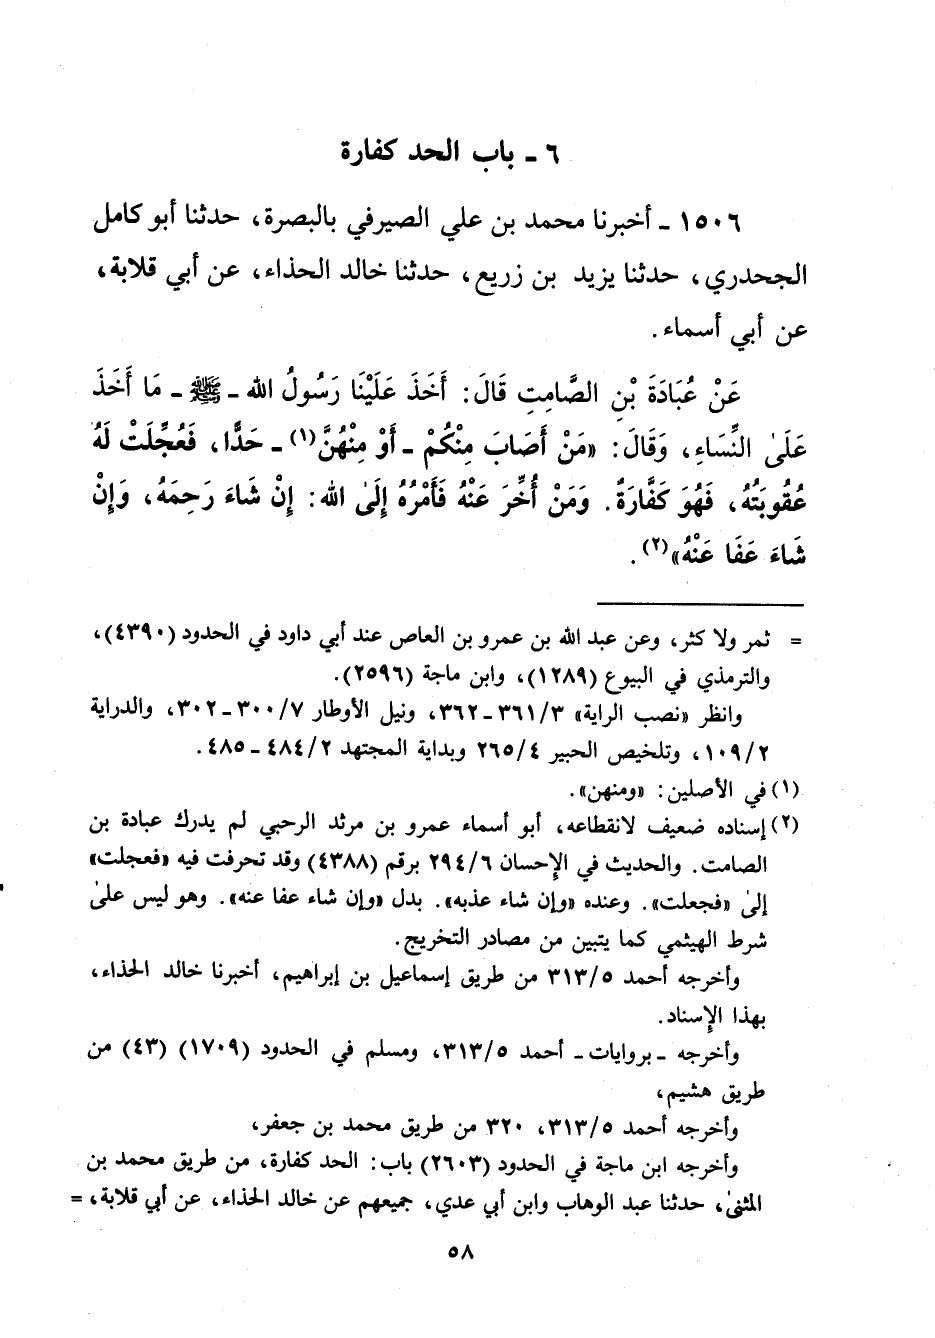 ٦ - باب الحد كفارة
١٥٠٦ - أخبرنا محمد بن علي الصيرفي بالبصرة، حدثنا أبو كامل
الجحدري، حدثنا يزيد بن زريع، حدثنا خالد الحذاء، عن أبي قلابة،
عن أبي أسماء.
عَنْ عُبَادَةَ بْنِ الصَّامِتِ قَالَ: أَخَذَ عَلَيْنَا رَسُولُ الله - ﷺ - مَا أَخَذَ
عَلَىٰ النِّسَاءِ، وَقَالَ: «مَنْ أَصَابَ مِنْكُمْ - أَوْ مِنْهُنَّ(١) - حَدًّا، فَعُجِّلَتْ لَهُ
عُقُوبَتُهُ، فَهُوَ كَفَّارَةٌ. وَمَنْ أُخِّرَ عَنْهُ فَأَمْرُهُ إِلَىٰ الله: إِنْ شَاءَ رَحِمَهُ، وَإِنْ
شَاءَ عَفَا عَنْهُ»(٢).
= ثمر ولا كثر، وعن عبد الله بن عمرو بن العاص عند أبي داود في الحدود (٤٣٩٠)،
والترمذي في البيوع (١٢٨٩)، وابن ماجة (٢٥٩٦).
وانظر «نصب الراية» ٣/٣٦١-٣٦٢، ونيل الأوطار ٧/٣٠٠-٣٠٢، والدراية
٢/١٠٩، وتلخيص الحبير ٤/٢٦٥ وبداية المجتهد ٢/٤٨٤-٤٨٥.
(١) في الأصلين: «ومنهن».
(٢) إسناده ضعيف لانقطاعه، أبو أسماء عمرو بن مرثد الرحبي لم يدرك عبادة بن
الصامت. والحديث في الإحسان ٦/٢٩٤ برقم (٤٣٨٨) وقد تحرفت فيه «فعجلت»
إلىٰ «فجعلت». وعنده «وإن شاء عذبه». بدل «وإن شاء عفا عنه». وهو ليس علىٰ
شرط الهيثمي كما يتبين من مصادر التخريج.
وأخرجه أحمد ٥/٣١٣ من طريق إسماعيل بن إبراهيم، أخبرنا خالد الحذاء،
بهذا الإسناد.
وأخرجه - بروايات - أحمد ٥/٣١٣، ومسلم في الحدود (١٧٠٩) (٤٣) من
طريق هشيم،
وأخرجه أحمد ٥/٣١٣، ٣٢٠ من طريق محمد بن جعفر،
وأخرجه ابن ماجة في الحدود (٢٦٠٣) باب: الحد كفارة، من طريق محمد بن
المثنىٰ، حدثنا عبد الوهاب وابن أبي عدي، جميعهم عن خالد الحذاء، عن أبي قلابة، =
٥٨